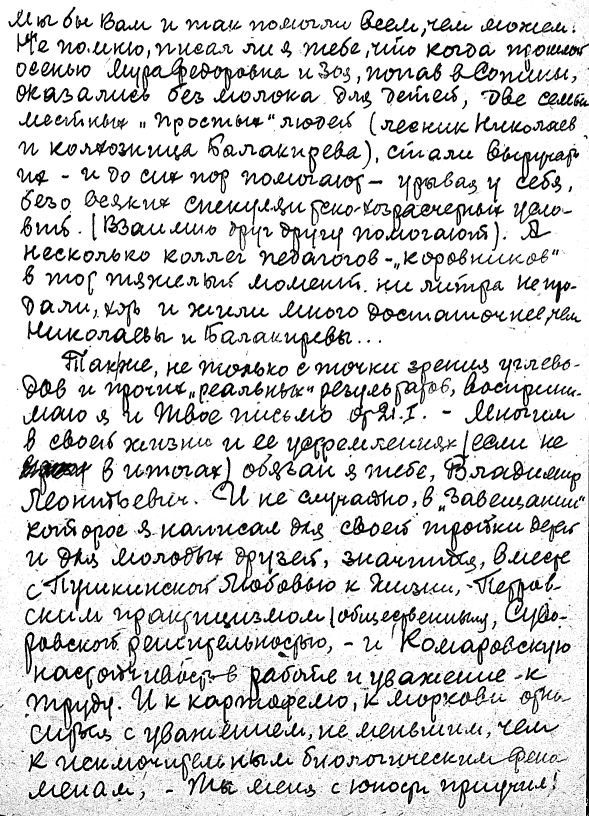 Мы бы Вам и так помогли всем, чем можем.
Не помню, писал ли я тебе, что когда прошлой
осенью Мура Федоровна и Зоя, попав в Сопины,
оказались без молока для детей, две семьи
местных „простых“ людей (лесник Николаев
и колхозница Балакирева), стали выручать
их - и до сих пор помогают - урывая у себя,
безо всяких спекулянтско-хозрасчетных усло-
вий. (Взаимно друг другу помогают). А
несколько коллег педагогов - „коровников“
в тот тяжелый момент ни литра не про-
дали, хоть и жили много достаточнее, чем
Николаевы и Балакиревы...
Также, не только с точки зрения углево-
дов и прочих „реальных“ результатов, восприни-
маю я и твое письмо от 21.I. - Многим
в своей жизни и ее устремлениях (если не
в итогах) обязан я тебе, Владимир
Леонтьевич. И не случайно, в „Завещании“
которое я написал для своей тройки детей
и для молодых друзей, значится, вместе
с Пушкинской Любовью к Жизни, - Петров-
ским практицизмом (общественным), Суво-
ровской решительностью, - и Комаровскую
настойчивость в работе и уважение - к
труду. И к картофелю, к моркови отно-
ситься с уважением, не меньшим, чем
к исключительным биологическим фено
менам, - Ты меня с юности приучил!